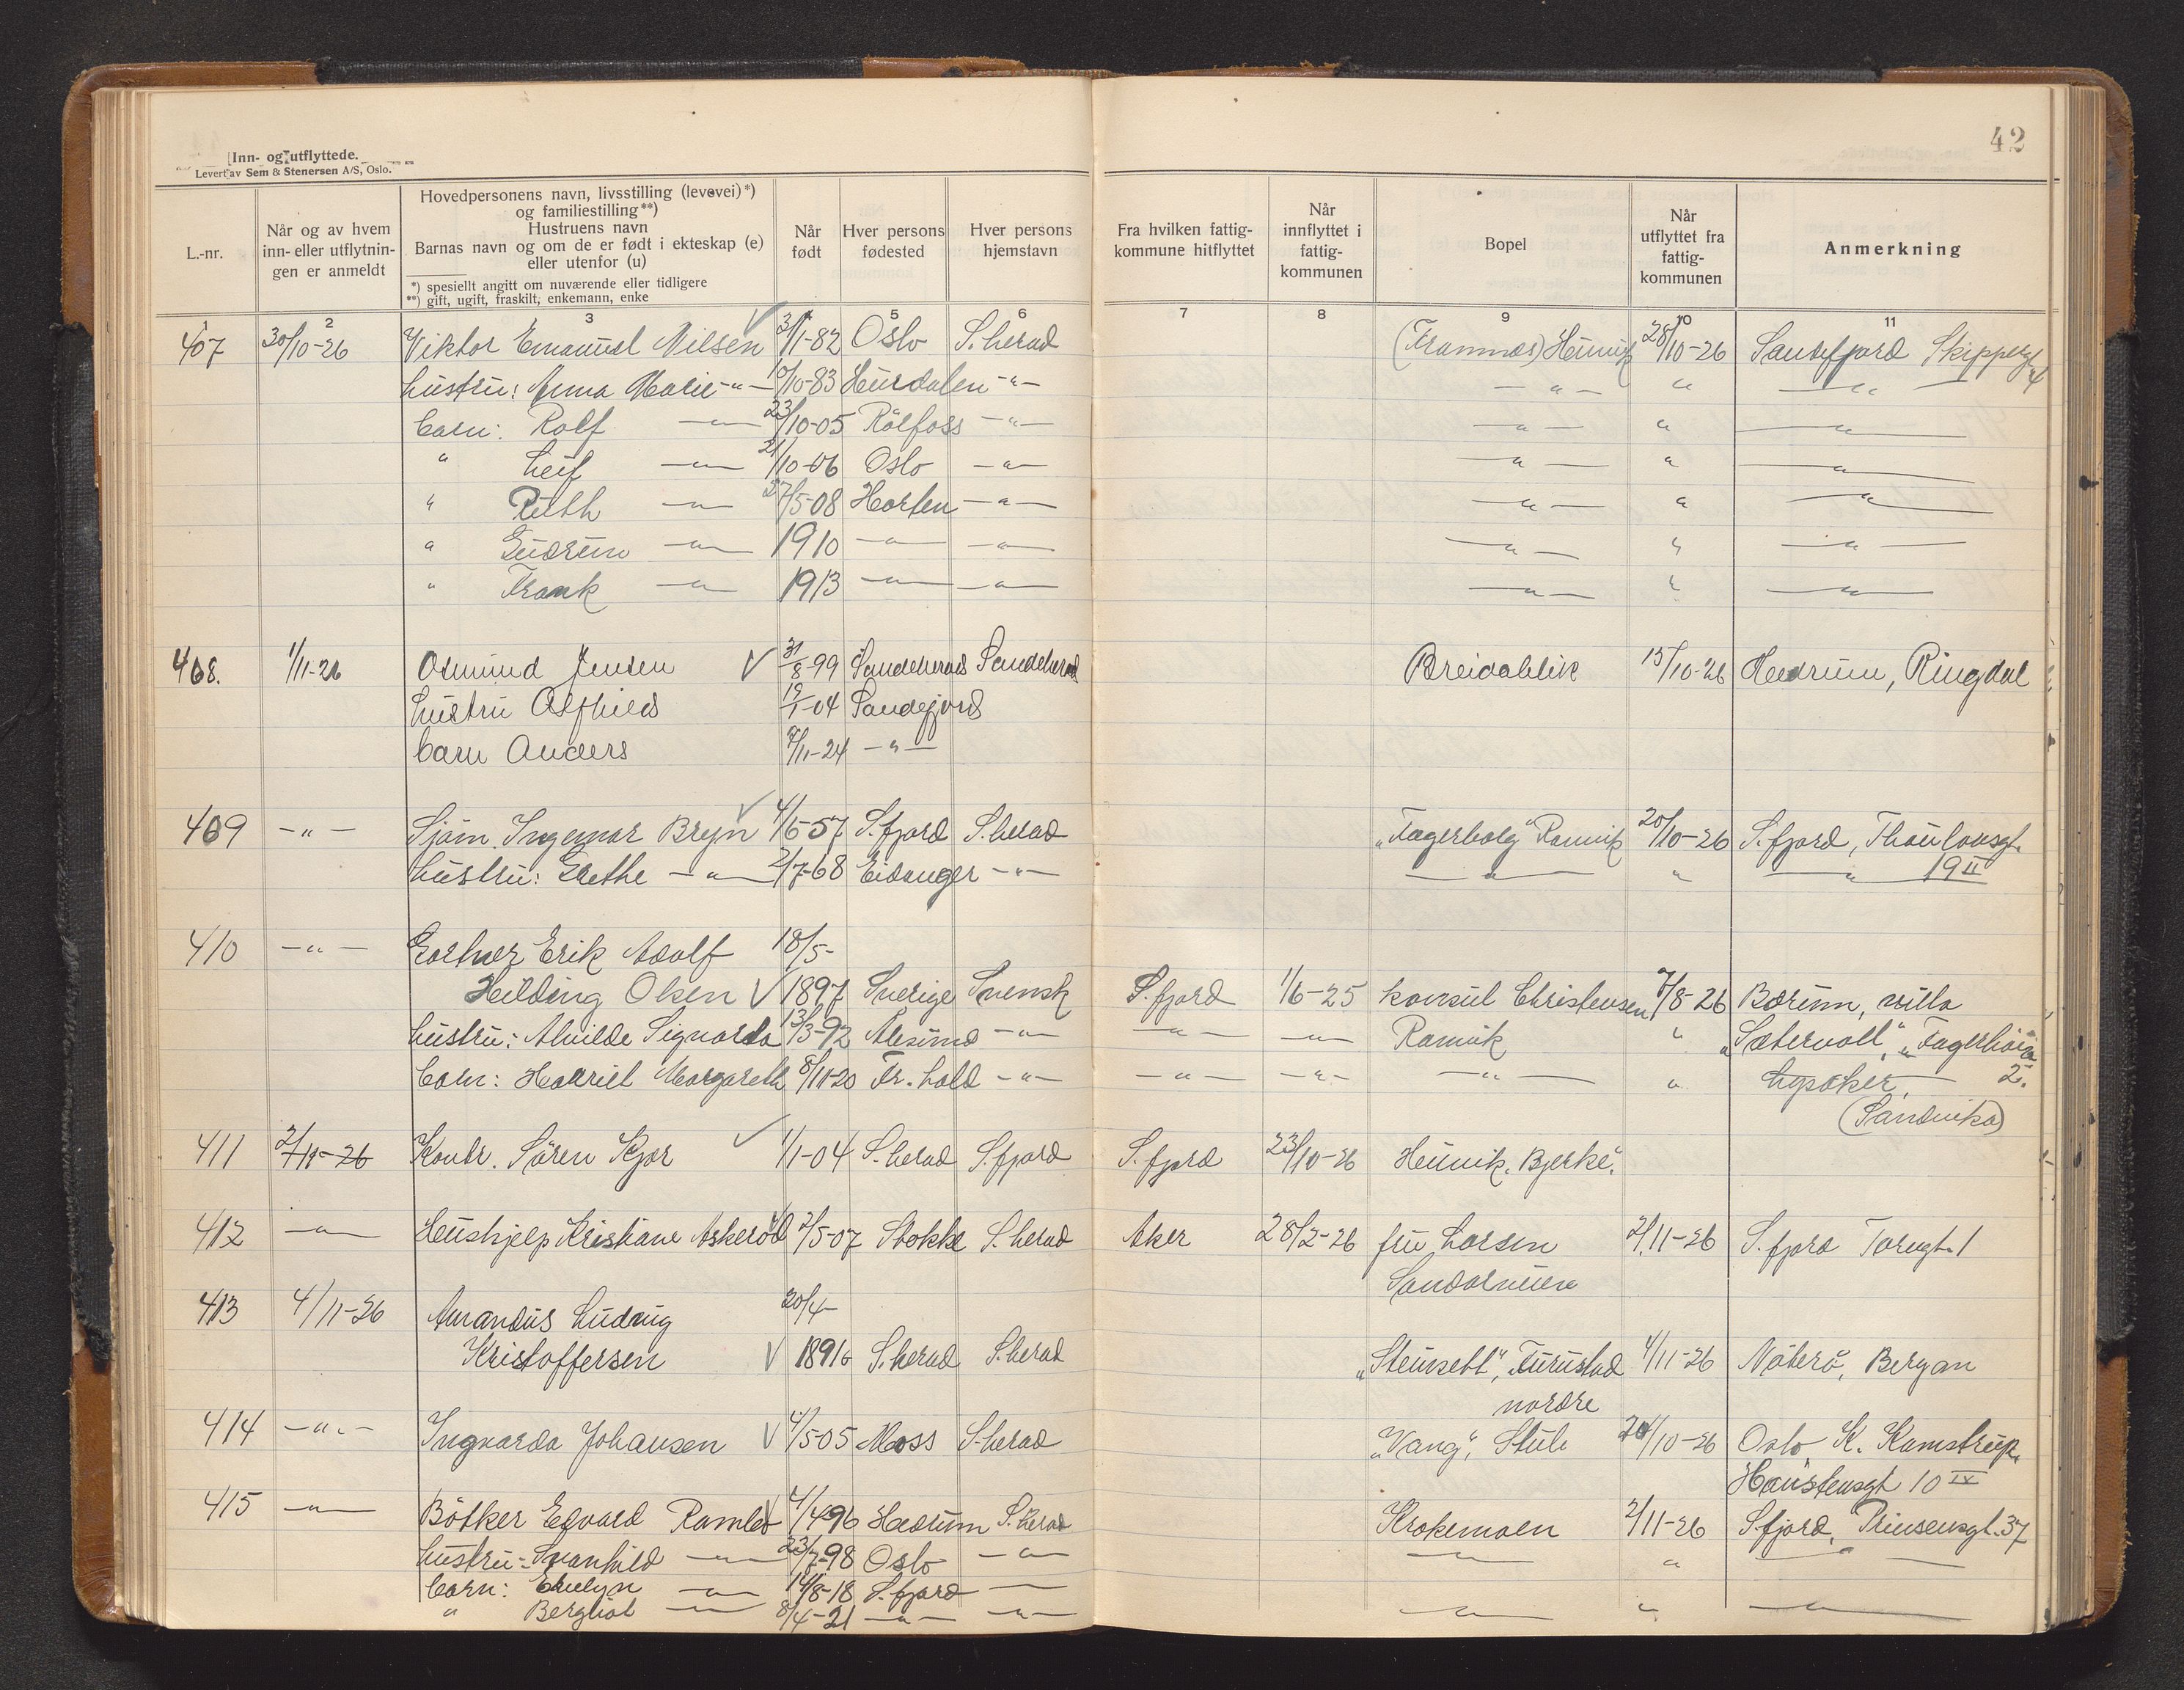 42
Inn- og utflyttede.
Levert av Sem & Stenersen A/S, Oslo.
L.-nr.
Når og av hvem
inn- eller utflytnin-
gen er anmeldt
Hovedpersonens navn, livsstilling (levevei)*)
og familiestilling**)
Hustruens navn
Barnas navn og om de er født i ekteskap (e)
eller utenfor (u)
*) spesiellt angitt om nuværende eller tidligere
**) gift, ugift, fraskilt, enkemann, enke
Når
født
Hver persons
fødested
Hver persons
hjemstavn
Fra hvilken fattig-
kommune hitflyttet
Når
innflyttet i
fattig-
kommunen
Bopel
Når
utflyttet fra
fattig-
kommunen
Anmerkning
2 3 5 6 7 8 9 10 11
407 30/10-26 Viktor Emanuel Nilsen 3/1-82 Oslo S.herad (Framnæs) 28/10-26 Sandefjord Skippergt. 4
hustru: Anna Marie -"- 10/10-83 Hurdalen -"- -"- " -"-
barn: Rolf -"- 23/10-05 -"- -"- " -"-
" Leif -"- 21/10-06 Oslo -"- -"- " -"-
" Ruth -"- 27/5-08 Horten -"- -"- " -"-
" Gudrun -"- 1910 -"- -"- -"- " -"-
" Frank -"- 1913 -"- -"- -"- " -"-
408. 1/11-26 Osmund Jensen 31/8-99 Sandeherad Sandeherad Breidablik 15/10-26 Hedrum, Ringdal
hustru Alfhild 19/1-04 Sandefjord
barn Anders /11-24 -"-
409 -"- Sjöm. Ingemar Bryn 4/6-57 S.fjord S.herad "Fagerborg" Ranvik 20/10-26 S.fjord, Thaulowsgt.
hustru: Grethe -"- 2/7-68 Eidanger -"- -"- " -"- 19 II
410 -"- Gartner Erik Adolf 18/5-
Hilding Olsen 1897 Sverige Svensk S.fjord 1/6-25 konsul Christensen /8-26 Bærum, villa
hustru: Alvilde Sigvarda 13/3-92 Alesund -"- -"- -"- Ranvik " "Sætervoll", Fagerhöi
barn: Harriet Margareth 8/11-20 Fr.hald -"- -"- -"- -"- " Lysaker, 2.
(Sandvika)
411 2/11-26 Kontr. Sören Kjær 1/1-04 S.herad S.fjord S.fjord 23/10-26 Heimvik. Bjerke.
412 -"- Hushjelp Kristiane Askerød 2/5-07 Stokke S.herad Aker 28/2-26 fru Larsen 2/11-26 S.fjord Torvgt. 1
413 4/11-26 Amandus Ludvig 20/4-
Kristoffersen 1891 S.herad S.herad "Steinsett", Furustad 4/11-26 Nöterö, Bergan
nordre
414 -"- Ingvarda Johansen 4/5-05 Moss S.herad "Vang", Stub 20/10-26 Oslo K. Kamstrup.
Haustensgt 10 IV
415 -"- Bötker Edvard Ramlet 4/4-96 Hedrum S.herad Krokemoen 2/11-26 S.fjord, Prinsensgt. 37
hustru: Svanhild -"- 23/7-98 Oslo -"- -"- " -"-
barn: Evelyn -"- 14/8-18 S.fjord -"-
" Bergliot -"- 8/4-21 -"- -"- -"- " -"-